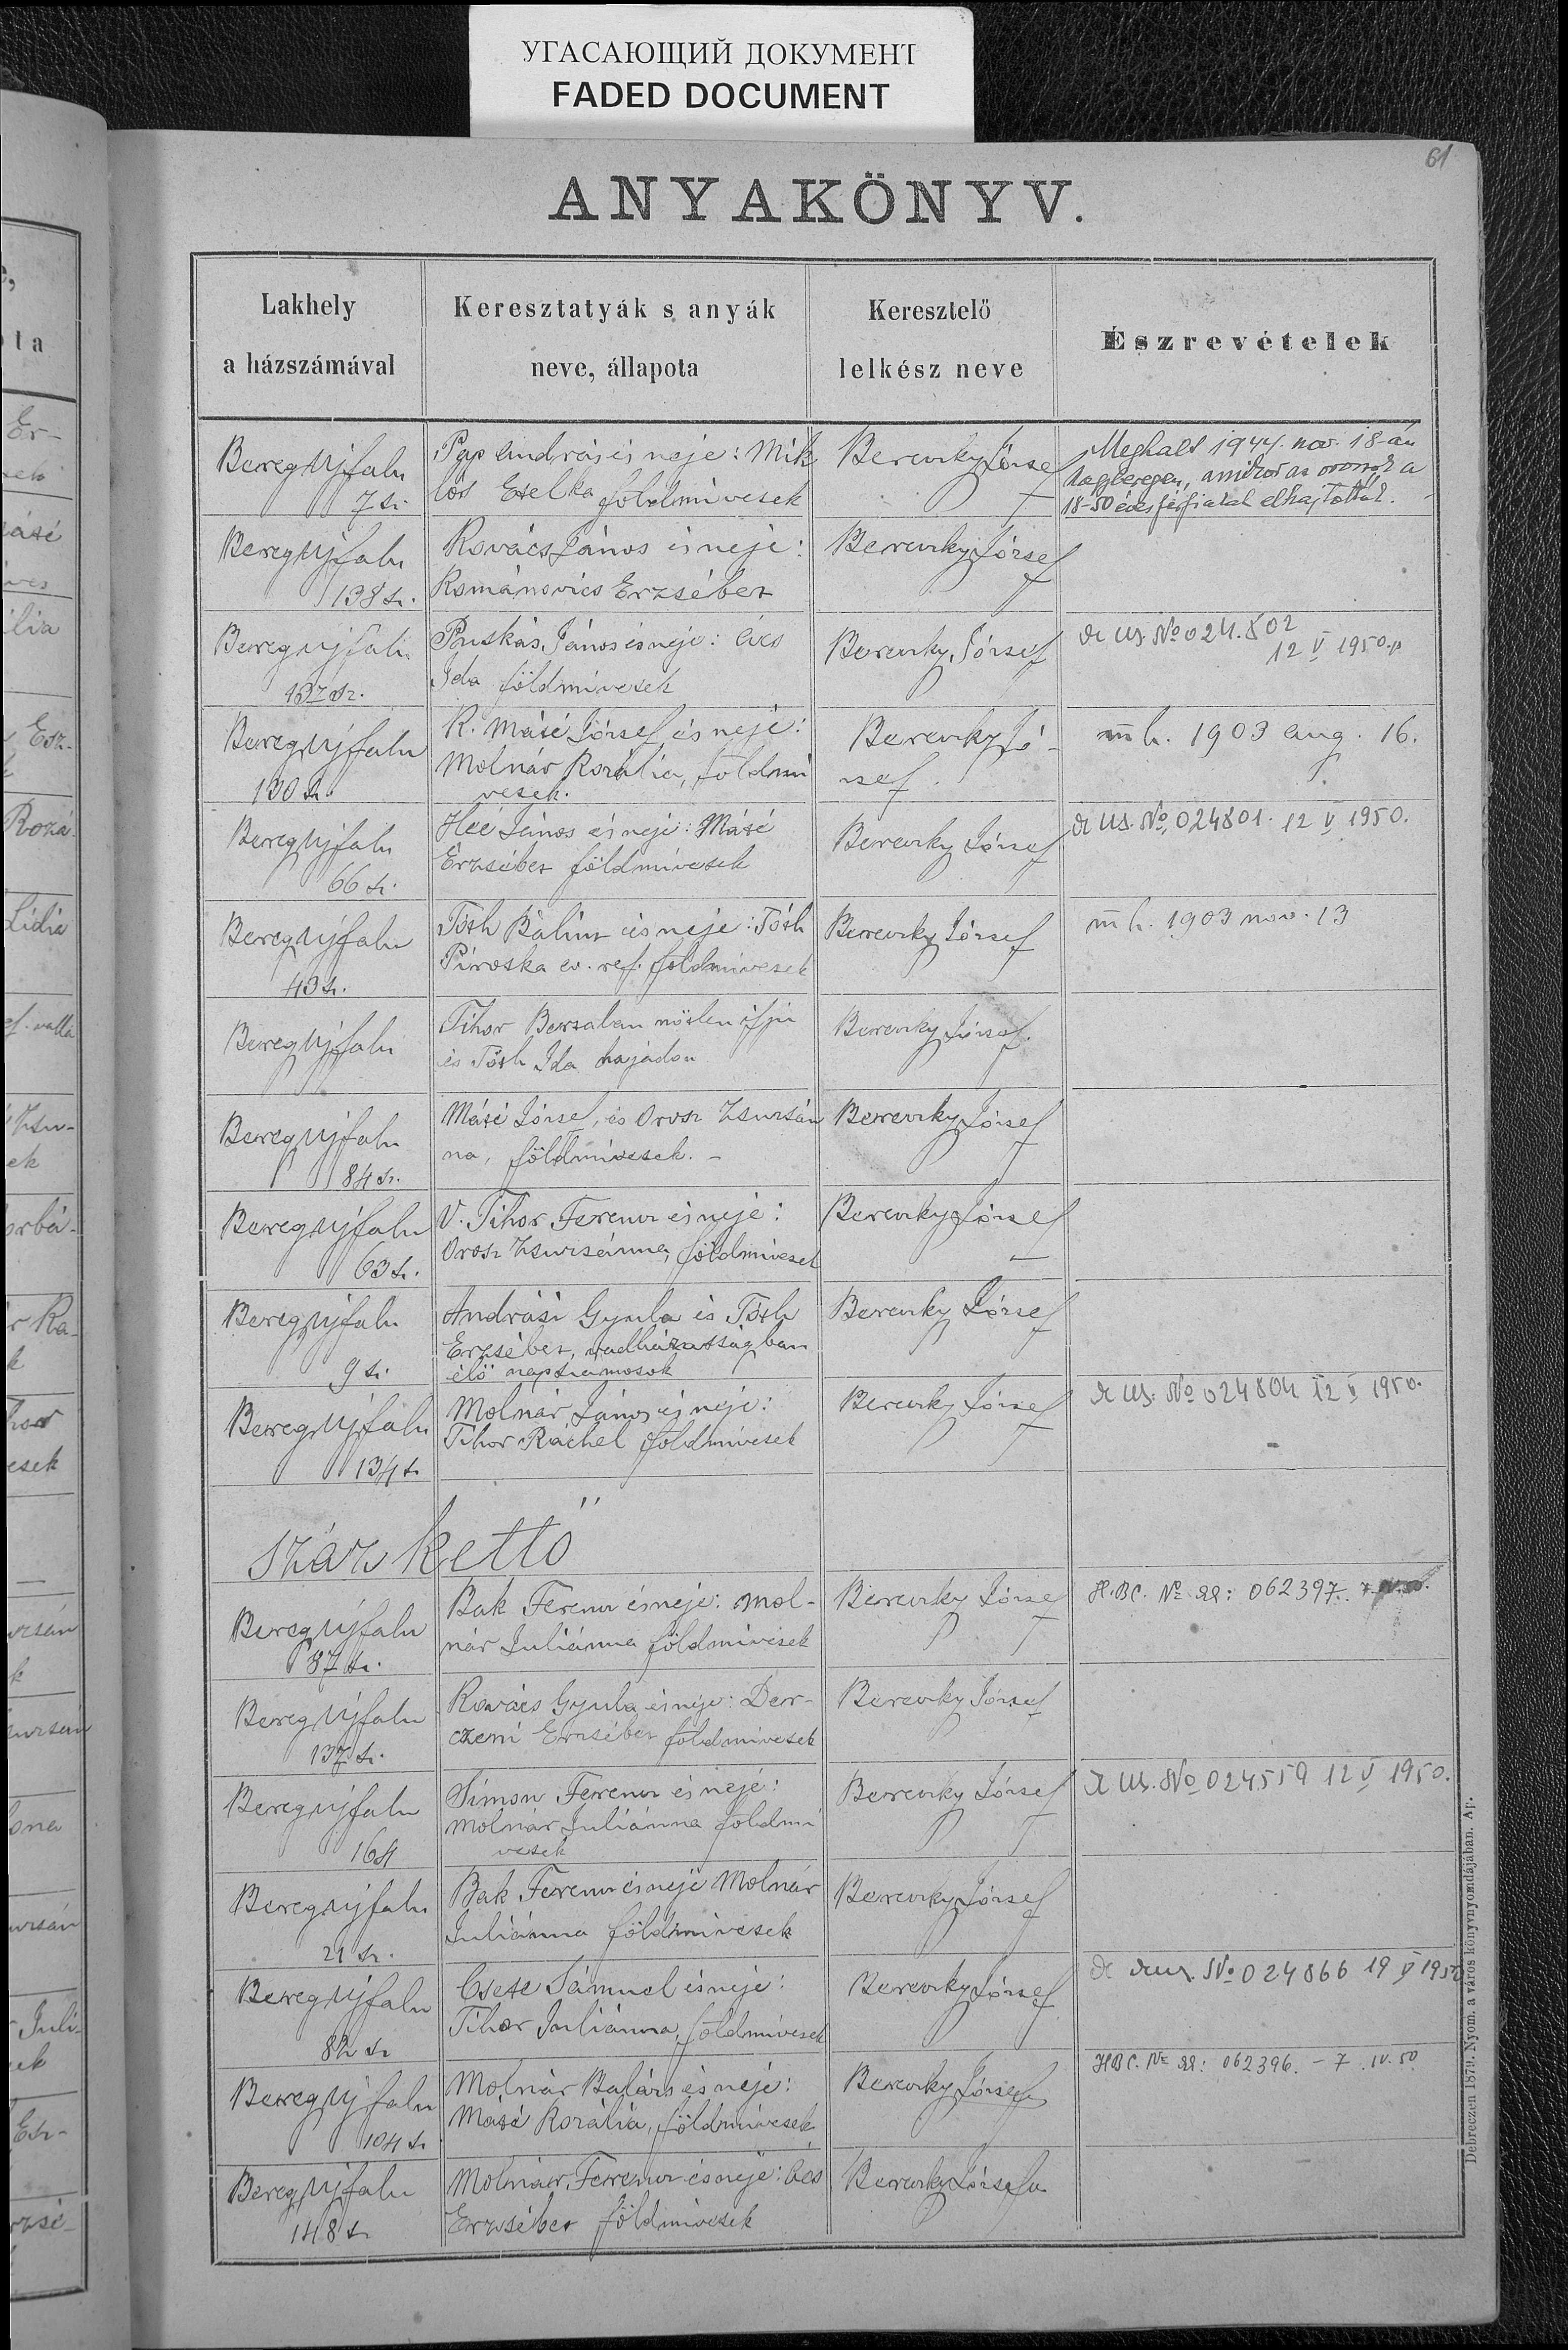 УГАСАЮЩИЙ ДОКУМЕНТ
FADED DOCUMENT
61
ANYAKÖNYV.
Lakhely
a házszámával
Keresztatyák s anyák
neve, állapota
Keresztelő
lelkész neve
Észrevételek
Beregujfalu
7 sz.
Pap András és neje: Mik
lós Etelka földmivesek
Bereczky József
Meghalt 1944. nov. 18-án
Nagyberegen, amikor az oroszok a
18-50 éves férfiakat elhajtották.
Beregujfalu
138 sz.
Kovács János és neje:
Románovics Erzsébet
Bereczky József
Beregujfalu
137 sz.
Puskás János és neje: Ács
Ida földmivesek
Bereczky József
No 024.802
12 V 1950.
Beregujfalu
130 sz.
K. Máté József és neje:
Molnár Rozália, földmi
vesek.
Bereczky Jó-
zsef.
mh. 1903 aug. 16.
Beregujfalu
66 sz.
Héé János és neje: Máté
Erzsébet földmivesek
Bereczky József
No 024801. 12 V 1950.
Beregujfalu
43 sz.
Tóth Bálint és neje: Tóth
Piroska ev. ref. földmivesek
Bereczky József
mh. 1903 nov. 13
Beregujfalu
Tihor Bertalan nőtlen ifju
és Tóth Ida hajadon
Bereczky József.
Beregujfalu
84 sz.
Máté József, és Orosz Zsuzsán
na, földmivesek. -
Bereczky József
Beregujfalu
63 sz.
V. Tihor Ferencz és neje:
Orosz Zsuzsánna, földmivesek
Bereczky József
Beregujfalu
9 sz.
Andrási Gyula és Tóth
Erzsébet, vadházasságban
élő napszamosok
Bereczky József
Beregujfalu
134 sz
Molnár János és neje:
Tihor Ráchel földmivesek
Bereczky József
No 024804 12 V 1950.
száz kettő
Beregujfalu
87 sz.
Bak Ferencz és neje: Mol-
nár Juliánna földmivesek
Bereczky József
Н.ВС. № ЯЯ: 062397.
Beregujfalu
137 sz.
Kovács Gyula és neje: Der-
czeni Erzsébet földmivesek
Bereczky József
Beregujfalu
164
Simon Ferencz és neje:
Molnár Juliánna földmi
vesek
Bereczky József
No 024559 12 V 1950.
Beregujfalu
21 sz.
Bak Ferencz és neje Molnár
Juliánna földmivesek
Bereczky József
Beregujfalu
82 sz
Csete Sámuel és neje:
Tihor Juliánna, földmivesek
Bereczky József
No 024866 19 V 1950
Beregujfalu
104 sz
Molnár Balázs és neje:
Máté Rozália, földmivesek
Bereczky József
НВС. № ЯЯ: 062396. - 7. IV. 50
Beregujfalu
148 sz
Molnár Ferencz és neje: Ács
Erzsébet földmivesek
Bereczky József
Debreczen 1879. Nyom. a város könyvnyomdájában. Ap.